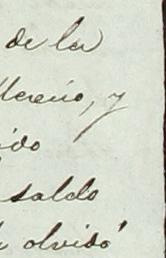 de la
Merino, y
ido
saldo
olvidó